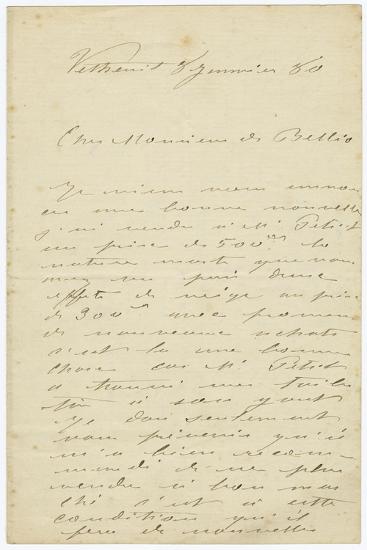 Vétheuil 8 Janvier 80
Cher Monsieur de Bellio
Je viens vous annon
cer une bonne nouvelle
j'ai vendu à Mr Petit
au prix de 500 la
nature morte que vous
avez un peu d'une
effets de neige au prix
de 300 avec promesse
de nouveaux achats
c'est là une bonne
chose car Mr Petit
a trouvé mes toiles
à son goût
Je dois seulement
vous prévenir qu'il
m'a bien recom
mandé de ne plus
vendre à bon mar
ché c'est à cette
condition qu'il
fera de nouvelles